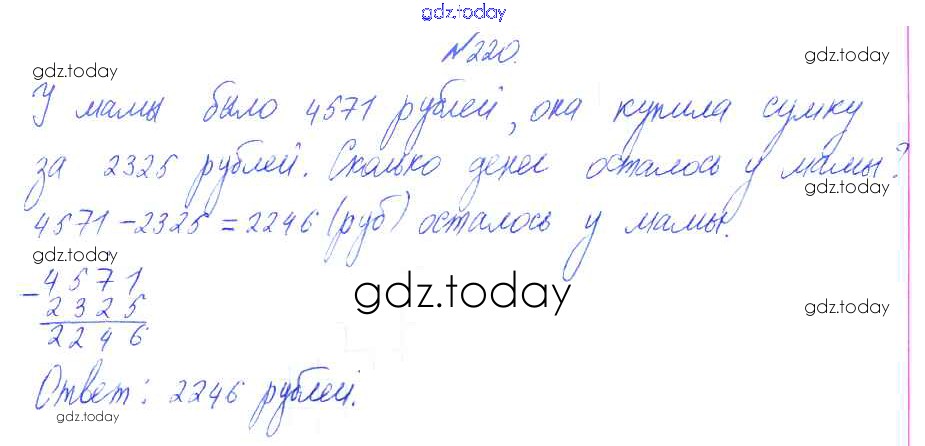 gdz.today
№220.
gdz.today gdz.today
У мамы было 4571 рублей, она купила сумку
за 2325 рублей. Сколько денег осталось у мамы?
gdz.today
4571-2325=2246 (руб) осталось у мамы.
gdz.today
-4571
2325
2246
gdz.today
gdz.today
Ответ: 2246 рублей.
gdz.today
gdz.today